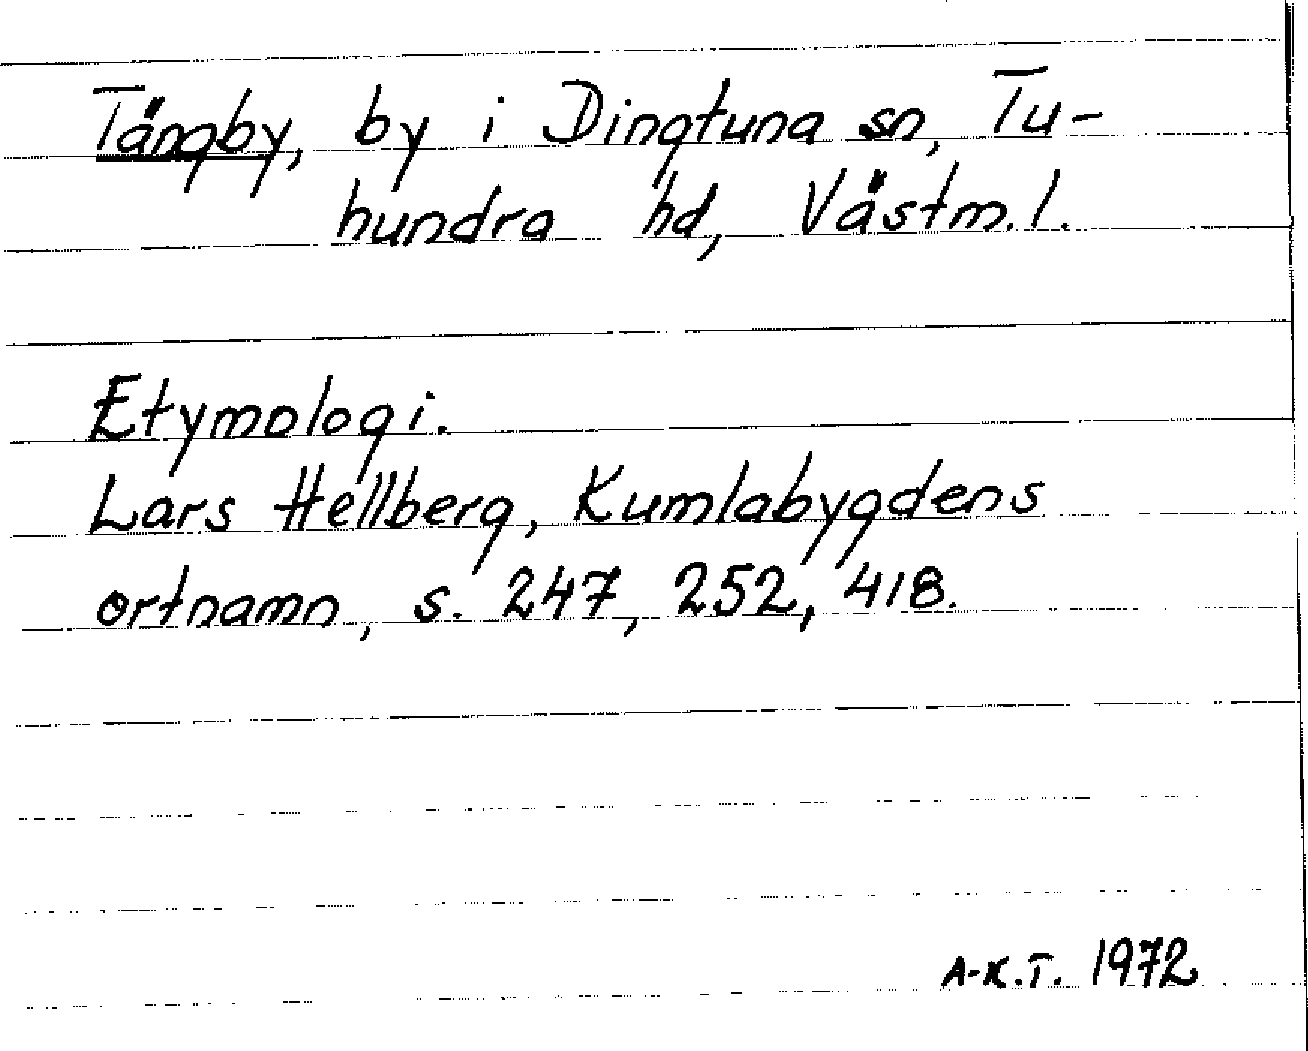 Tängby, by i Dingtuna sn, Tu-
hundra hd, Västm. l.
Etymologi.
Lars Hellberg, Kumlabygdens
ortnamn, s. 247, 252, 418.
A-K.T. 1972